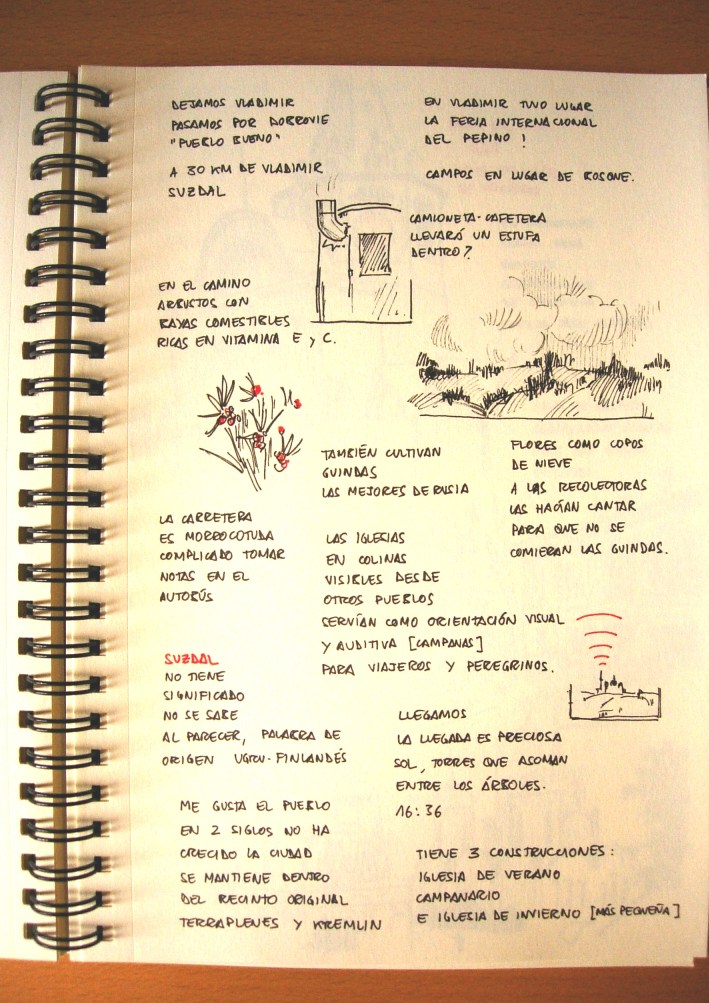 DEJAMOS VLADIMIR
PASAMOS POR DOBROVIE
"PUEBLO BUENO"
A 30 KM DE VLADIMIR
SUZDAL
EN VLADIMIR TUVO LUGAR
LA FERIA INTERNACIONAL
DEL PEPINO!
CAMPOS EN LUGAR DE BOSQUE.
CAMIONETA-CAFETERA
LLEVARÁ UN ESTUFA
DENTRO?
EN EL CAMINO
ARBUSTOS CON
BAYAS COMESTIBLES
RICAS EN VITAMINA E y C.
TAMBIÉN CULTIVAN
GUINDAS
LAS MEJORES DE RUSIA
FLORES COMO COPOS
DE NIEVE
A LAS RECOLECTORAS
LAS HACÍAN CANTAR
PARA QUE NO SE
COMIERAN LAS GUINDAS.
LA CARRETERA
ES MORROCOTUDA
COMPLICADO TOMAR
NOTAS EN EL
AUTOBÚS
LAS IGLESIAS
EN COLINAS
VISIBLES DESDE
OTROS PUEBLOS
SERVÍAN COMO ORIENTACIÓN VISUAL
Y AUDITIVA [CAMPANAS]
PARA VIAJEROS Y PEREGRINOS.
SUZDAL
NO TIENE
SIGNIFICADO
NO SE SABE
AL PARECER, PALABRA DE
ORIGEN UGRU-FINLANDÉS
LLEGAMOS
LA LLEGADA ES PRECIOSA
SOL, TORRES QUE ASOMAN
ENTRE LOS ÁRBOLES.
16:36
ME GUSTA EL PUEBLO
EN 2 SIGLOS NO HA
CRECIDO LA CIUDAD
SE MANTIENE DENTRO
DEL RECINTO ORIGINAL
TERRAPLENES Y KREMLIN
TIENE 3 CONSTRUCCIONES:
IGLESIA DE VERANO
CAMPANARIO
E IGLESIA DE INVIERNO [MÁS PEQUEÑA]